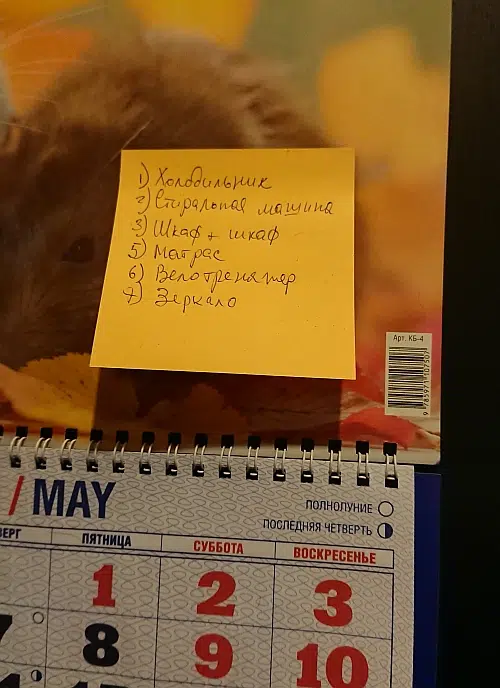 1) Холодильник
2) Стиральная машина
3) Шкаф + шкаф
5) Матрас
6) Велотренажер
7) Зеркало
Арт. КБ-4
9 785971 107507
/ MAY
ПОЛНОЛУНИЕ
ПОСЛЕДНЯЯ ЧЕТВЕРТЬ
ВЕРГ ПЯТНИЦА СУББОТА ВОСКРЕСЕНЬЕ
1 2 3
7 8 9 10